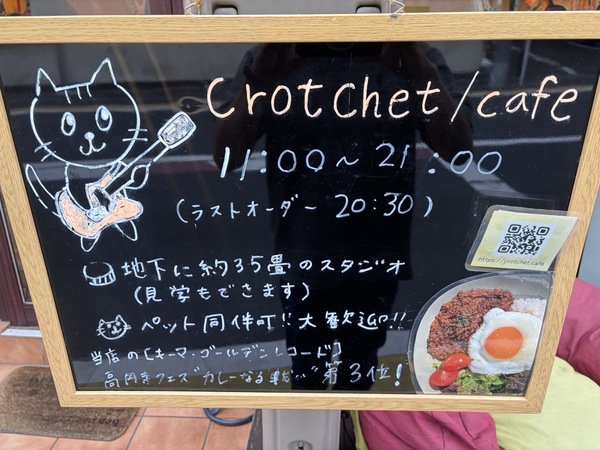 Crotchet/cafe
11:00〜21:00
(ラストオーダー 20:30)
https://crotchet.cafe
地下に約35畳のスタジオ
(見学もできます)
ペット同伴可!!大歓迎!!
当店の[キーマ・ゴールデンレコード]
高円寺フェス"カレーなる戦い"第3位!